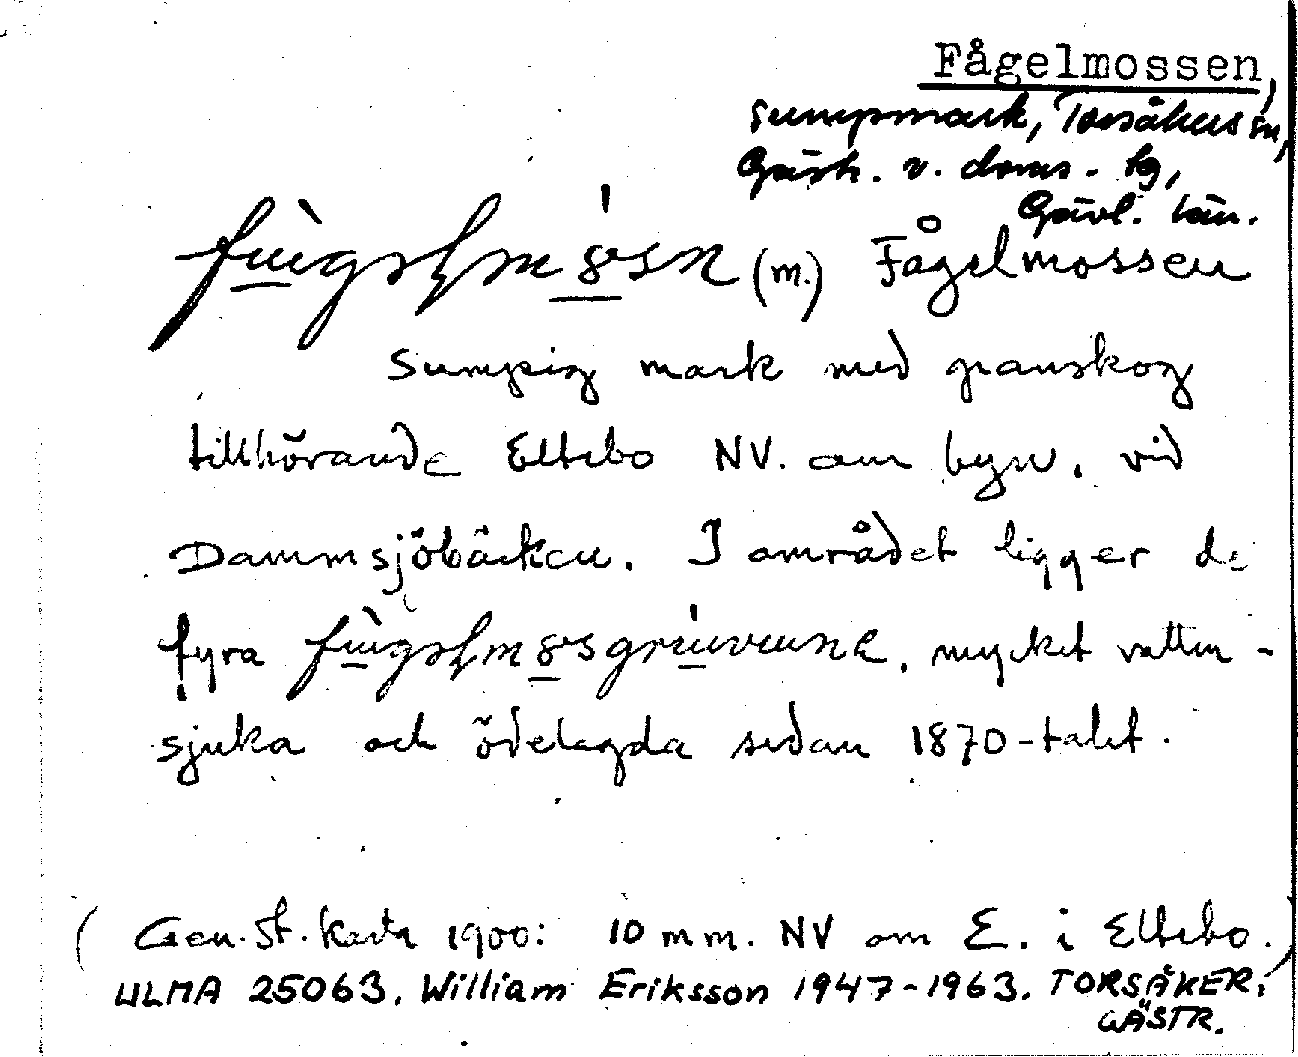 Fågelmossen,
sumpmark, Torsåkers sn,
Gästr. v. doms. tg,
Gävl. län.
(m.) Fågelmossen
Sumpig mark med granskog
tillhörande Eltebo NV. om byn, vid
Dammsjöbäcken. I området ligger de
fyra , mycket vatten-
sjuka och ödelagda sedan 1870-talet.
(Gen. St. karta 1900: 10 mm. NV om E. i Eltebo.)
ULMA 25063. William Eriksson 1947-1963. TORSÅKER,
GÄSTR.